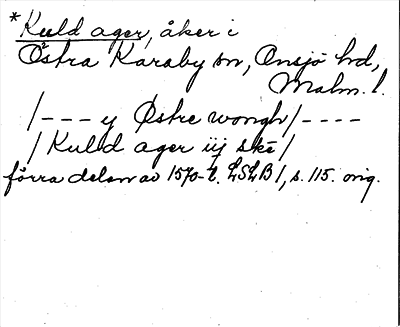 *Kuld ager, åker i
Östra Karaby sn, Onsjö hd,
Malm. l.
/---y Østre wongh/----
/Kuld ager iij ske/
förra delen av 1570-t. LSLB 1, s. 115. orig.